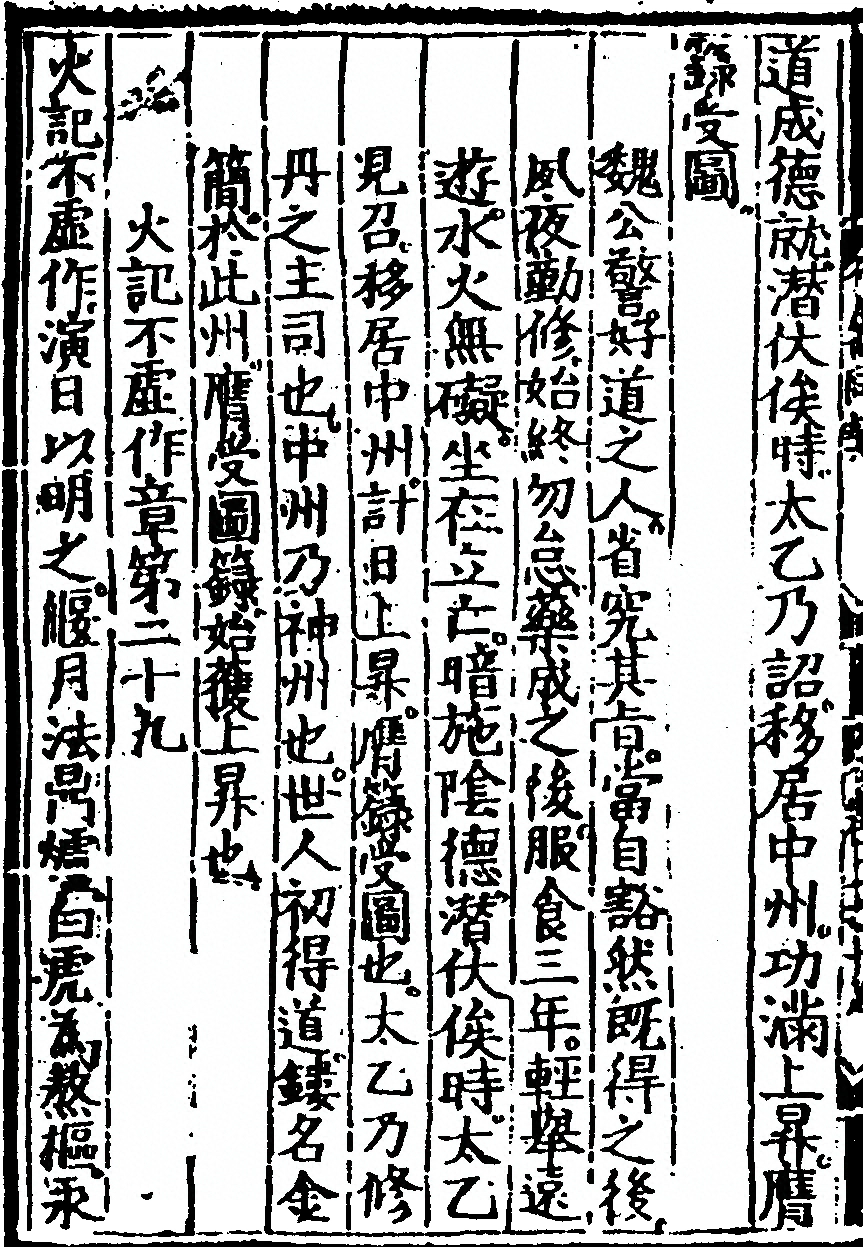 道成德就潛伏俟時太乙乃詔移居中州功滿上昇膺
籙受圖
魏公警好道之人省究其旨當自豁然既得之後
夙夜勤修始終勿怠藥成之後服食三年輕舉遠
遊水火無礙坐在立亡暗施陰德潛伏俟時太乙
見召移居中州計日上昇膺籙受圖也太乙乃修
丹之主司也中州乃神州也世人初得道鏤名金
簡於此州膺受圖籙始獲上昇也
火記不虛作章第二十九
火記不虛作演日以明之偃月法鼎爐白虎為熬樞汞